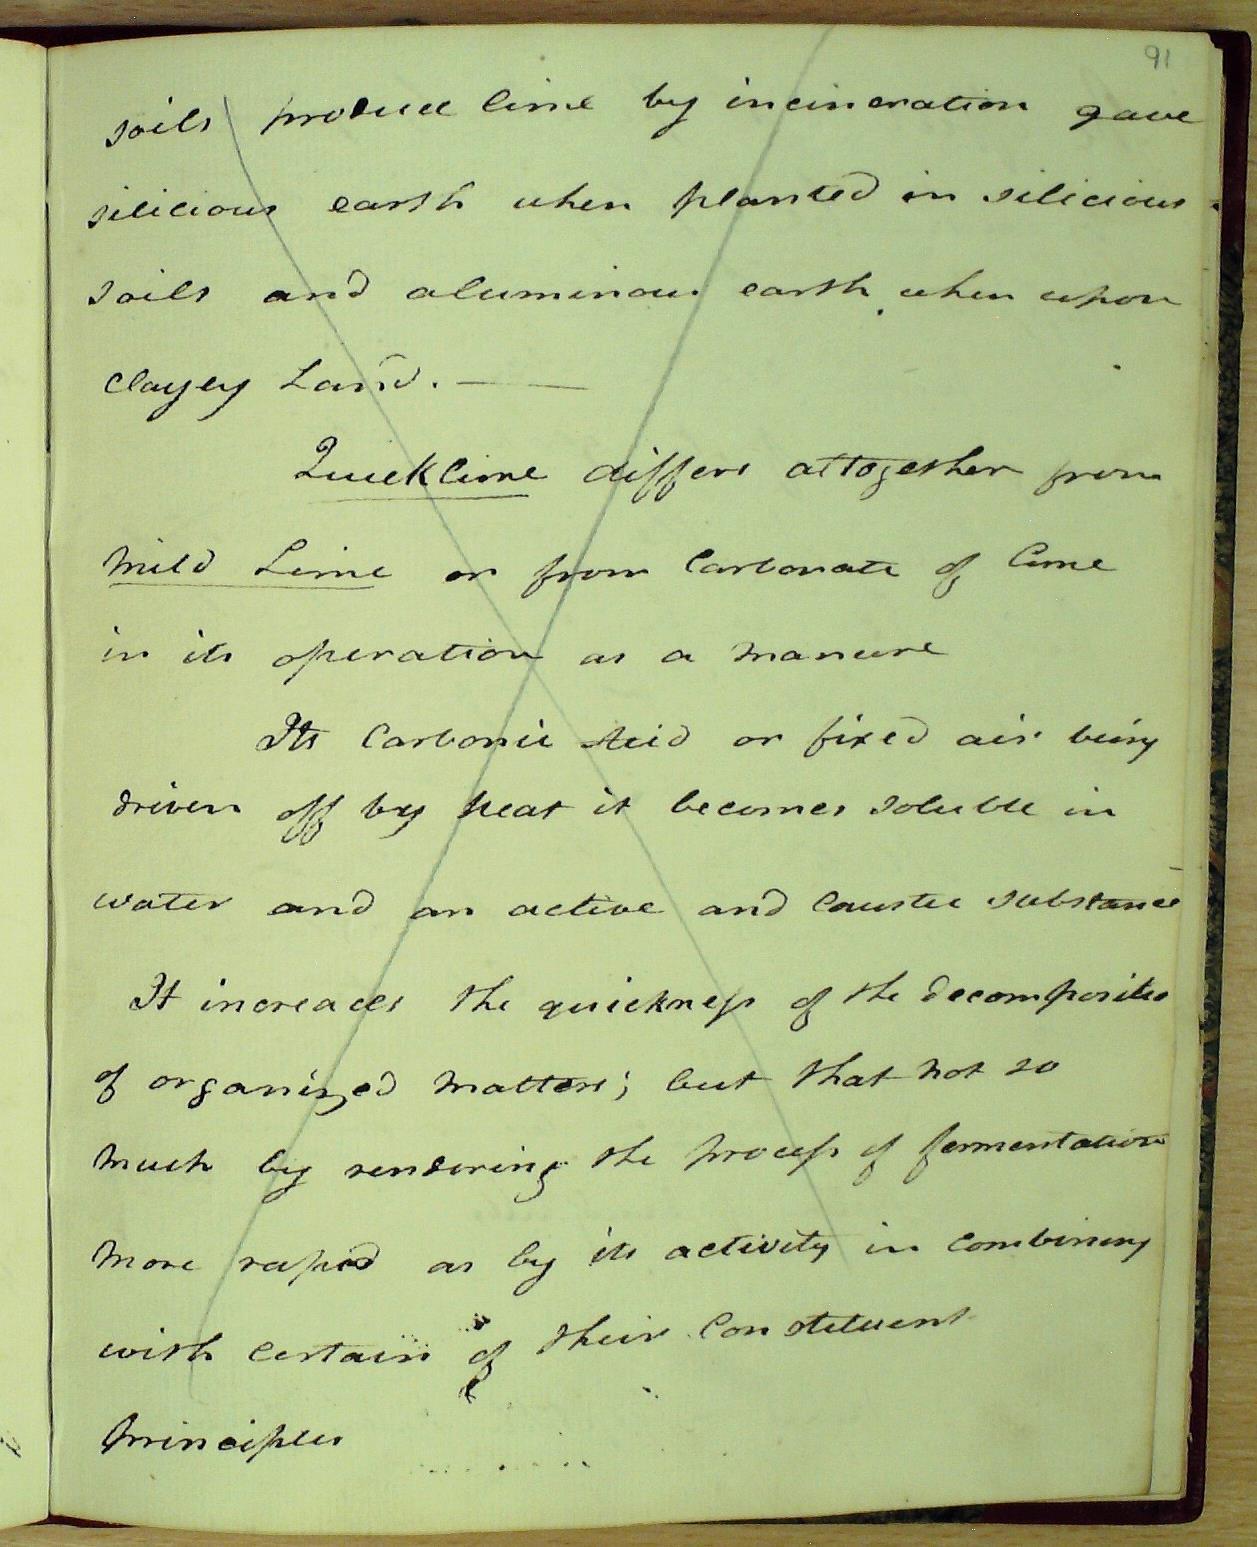 91
soils produce lime by incineration gave
silicious earth when planted in silicious
soils and aluminous earth when upon
clayey Land. ——
Quicklime differs altogether from
Mild Lime or from Carbonate of Lime
in its operation as a manure
Its Carbonic Acid or fixed air being
driven off by heat it becomes soluble in
water and an active and Caustic substance
It increaces the quickness of the decomposition
of organized matters; but that not so
much by rendering the process of fermentation
more rapid as by its activity in combining
with certain of their Constituent
Principles